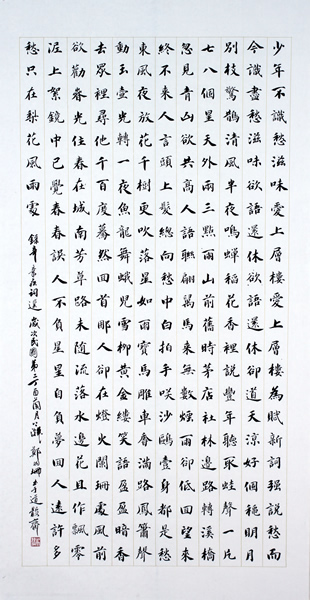 少年不識愁滋味愛上層樓愛上層樓為賦新詞強說愁而
今識盡愁滋味欲語還休欲語還休卻道天涼好個穐明月
別枝驚鵲清風半夜鳴蟬稻花香裡說豐年聽取蛙聲一片
七八個星天外兩三點雨山前舊時茅店社林邊路轉溪橋
忽見青山欲共高人語聯翩萬馬來無數煙雨卻低回望來
終不來人言頭上髮總向愁中白拍手笑沙鷗一身都是愁
東風夜放花千樹更吹落星如雨寶馬雕車香滿路鳳簫聲
動玉壺光轉一夜魚龍舞蛾兒雪柳黃金縷笑語盈盈暗香
去眾裡尋他千百度驀然回首那人卻在燈火闌珊處風前
欲勸春光住春在城南芳草路未隨流落水邊花且作飄零
泥上絮鏡中已覺春春誤人不負星星自負夢回人遠許多
愁只在梨花風雨處
錄辛棄疾詞選 歲次民國第二丁酉閏月 鄭